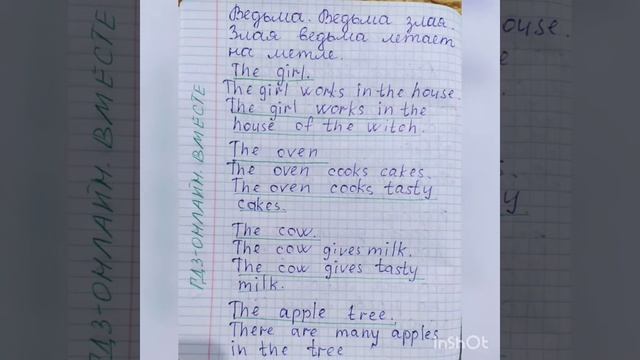 Ведьма. Ведьма злая.
Злая ведьма летает
на метле.
The girl.
The girl works in the house.
The girl works in the
house of the witch.
The oven
The oven cooks cakes.
The oven cooks tasty
cakes.
The cow.
The cow gives milk.
The cow gives tasty
milk.
The apple tree.
There are many apples
in the tree
ГДЗ-ОНЛАЙН. ВМЕСТЕ
InShOt